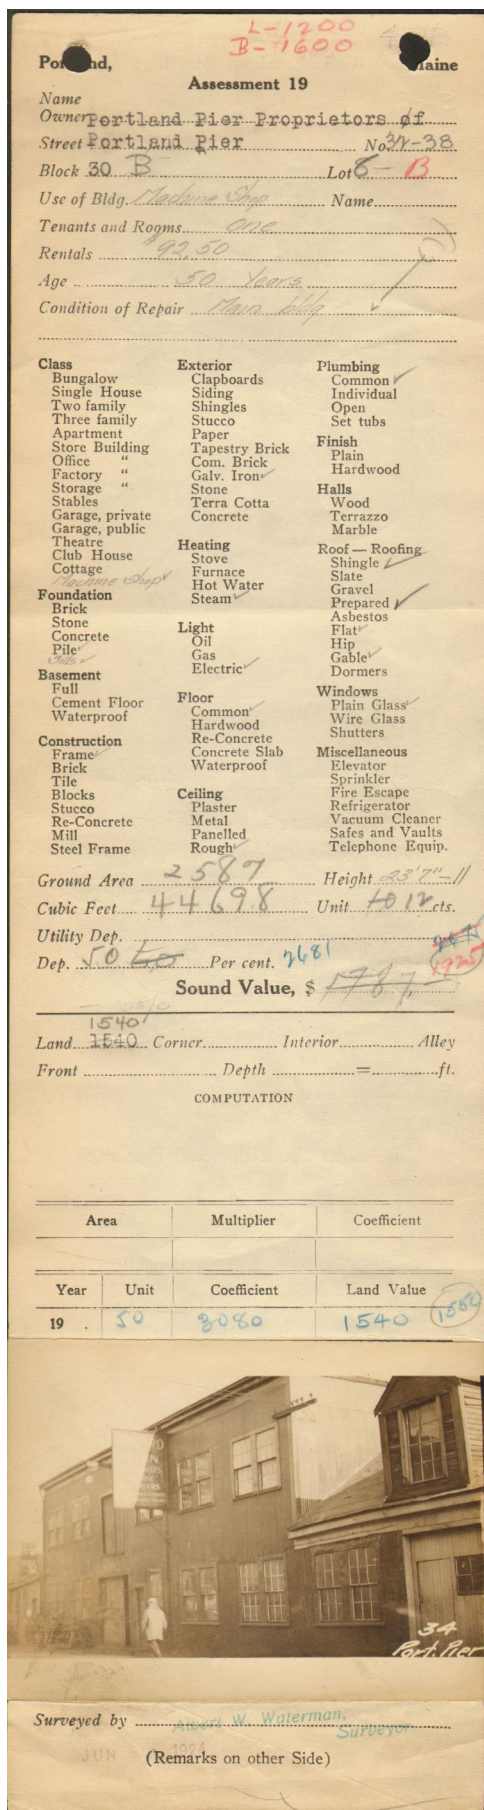 L-1200
B-1600
Portland, Maine
Assessment 19
Name
Owner Portland Pier Proprietors of
Street Portland Pier No 34-38
Block 30 B Lot 8-B
Use of Bldg. Machine Shop Name
Tenants and Rooms one
Rentals $92.50
Age 50 Years
Condition of Repair Main bldg ✓
Class
Bungalow
Single House
Two family
Three family
Apartment
Store Building
Office "
Factory "
Storage "
Stables
Garage, private
Garage, public
Theatre
Club House
Cottage
Machine Shop ✓
Foundation
Brick
Stone
Concrete
Pile ✓
Basement
Full
Cement Floor
Waterproof
Construction
Frame ✓
Brick
Tile
Blocks
Stucco
Re-Concrete
Mill
Steel Frame
Exterior
Clapboards
Siding
Shingles
Stucco
Paper
Tapestry Brick
Com. Brick
Galv. Iron ✓
Stone
Terra Cotta
Concrete
Heating
Stove
Furnace
Hot Water
Steam ✓
Light
Oil
Gas
Electric ✓
Floor
Common ✓
Hardwood
Re-Concrete
Concrete Slab
Waterproof
Ceiling
Plaster
Metal
Panelled
Rough ✓
Plumbing
Common ✓
Individual
Open
Set tubs
Finish
Plain
Hardwood
Halls
Wood
Terrazzo
Marble
Roof — Roofing
Shingle ✓
Slate
Gravel
Prepared ✓
Asbestos
Flat ✓
Hip
Gable ✓
Dormers
Windows
Plain Glass ✓
Wire Glass
Shutters
Miscellaneous
Elevator
Sprinkler
Fire Escape
Refrigerator
Vacuum Cleaner
Safes and Vaults
Telephone Equip.
Ground Area 2587 Height 23'7"-11
Cubic Feet 44698 Unit 10 12 cts.
Utility Dep.
Dep. 50 60 Per cent. 2681 1925
Sound Value, $ 1787
1540
Land 1540 Corner Interior Alley
Front Depth = ft.
COMPUTATION
Area Multiplier Coefficient
Year Unit Coefficient Land Value
19 . 50 3080 1540 1550
34
Port. Pier
Surveyed by Albert W. Waterman,
Surveyor
JUN 1924
(Remarks on other Side)